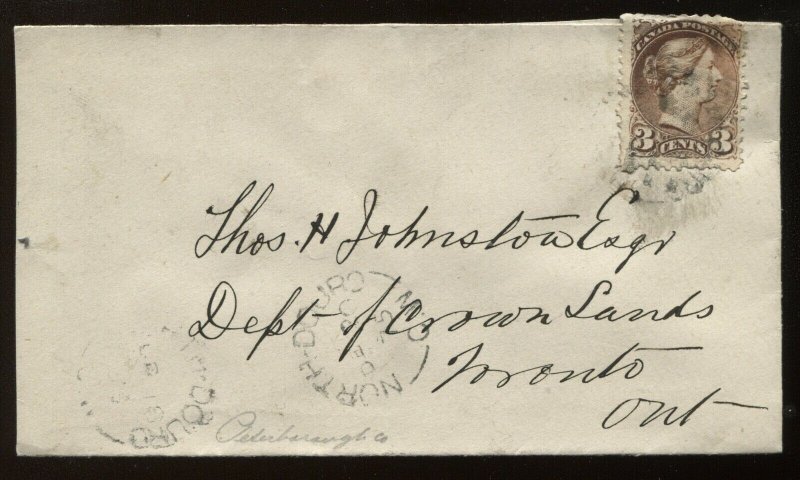 CANADA POSTAGE
3 CENTS 3
Thos. H Johnston Esqr
Dept of Crown Lands
Toronto
Ont
NORTH-DOURO
ONT
Peterborough Co